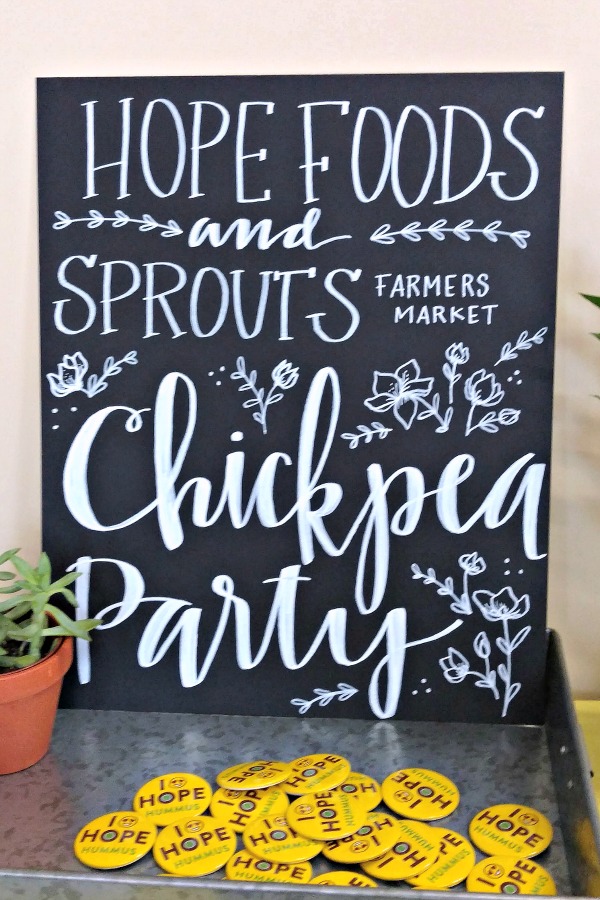 HOPE FOODS
and
SPROUTS FARMERS
MARKET
Chickpea
Party
I
HOPE
HUMMUS
I
HOPE
HUMMUS
I
HOPE
HUMMUS
HOPE
I
HOPE
HUMMUS
HOPE
HUMMUS
HOPE
HUMMUS
I
HOPE
HUMMUS
I
HOPE